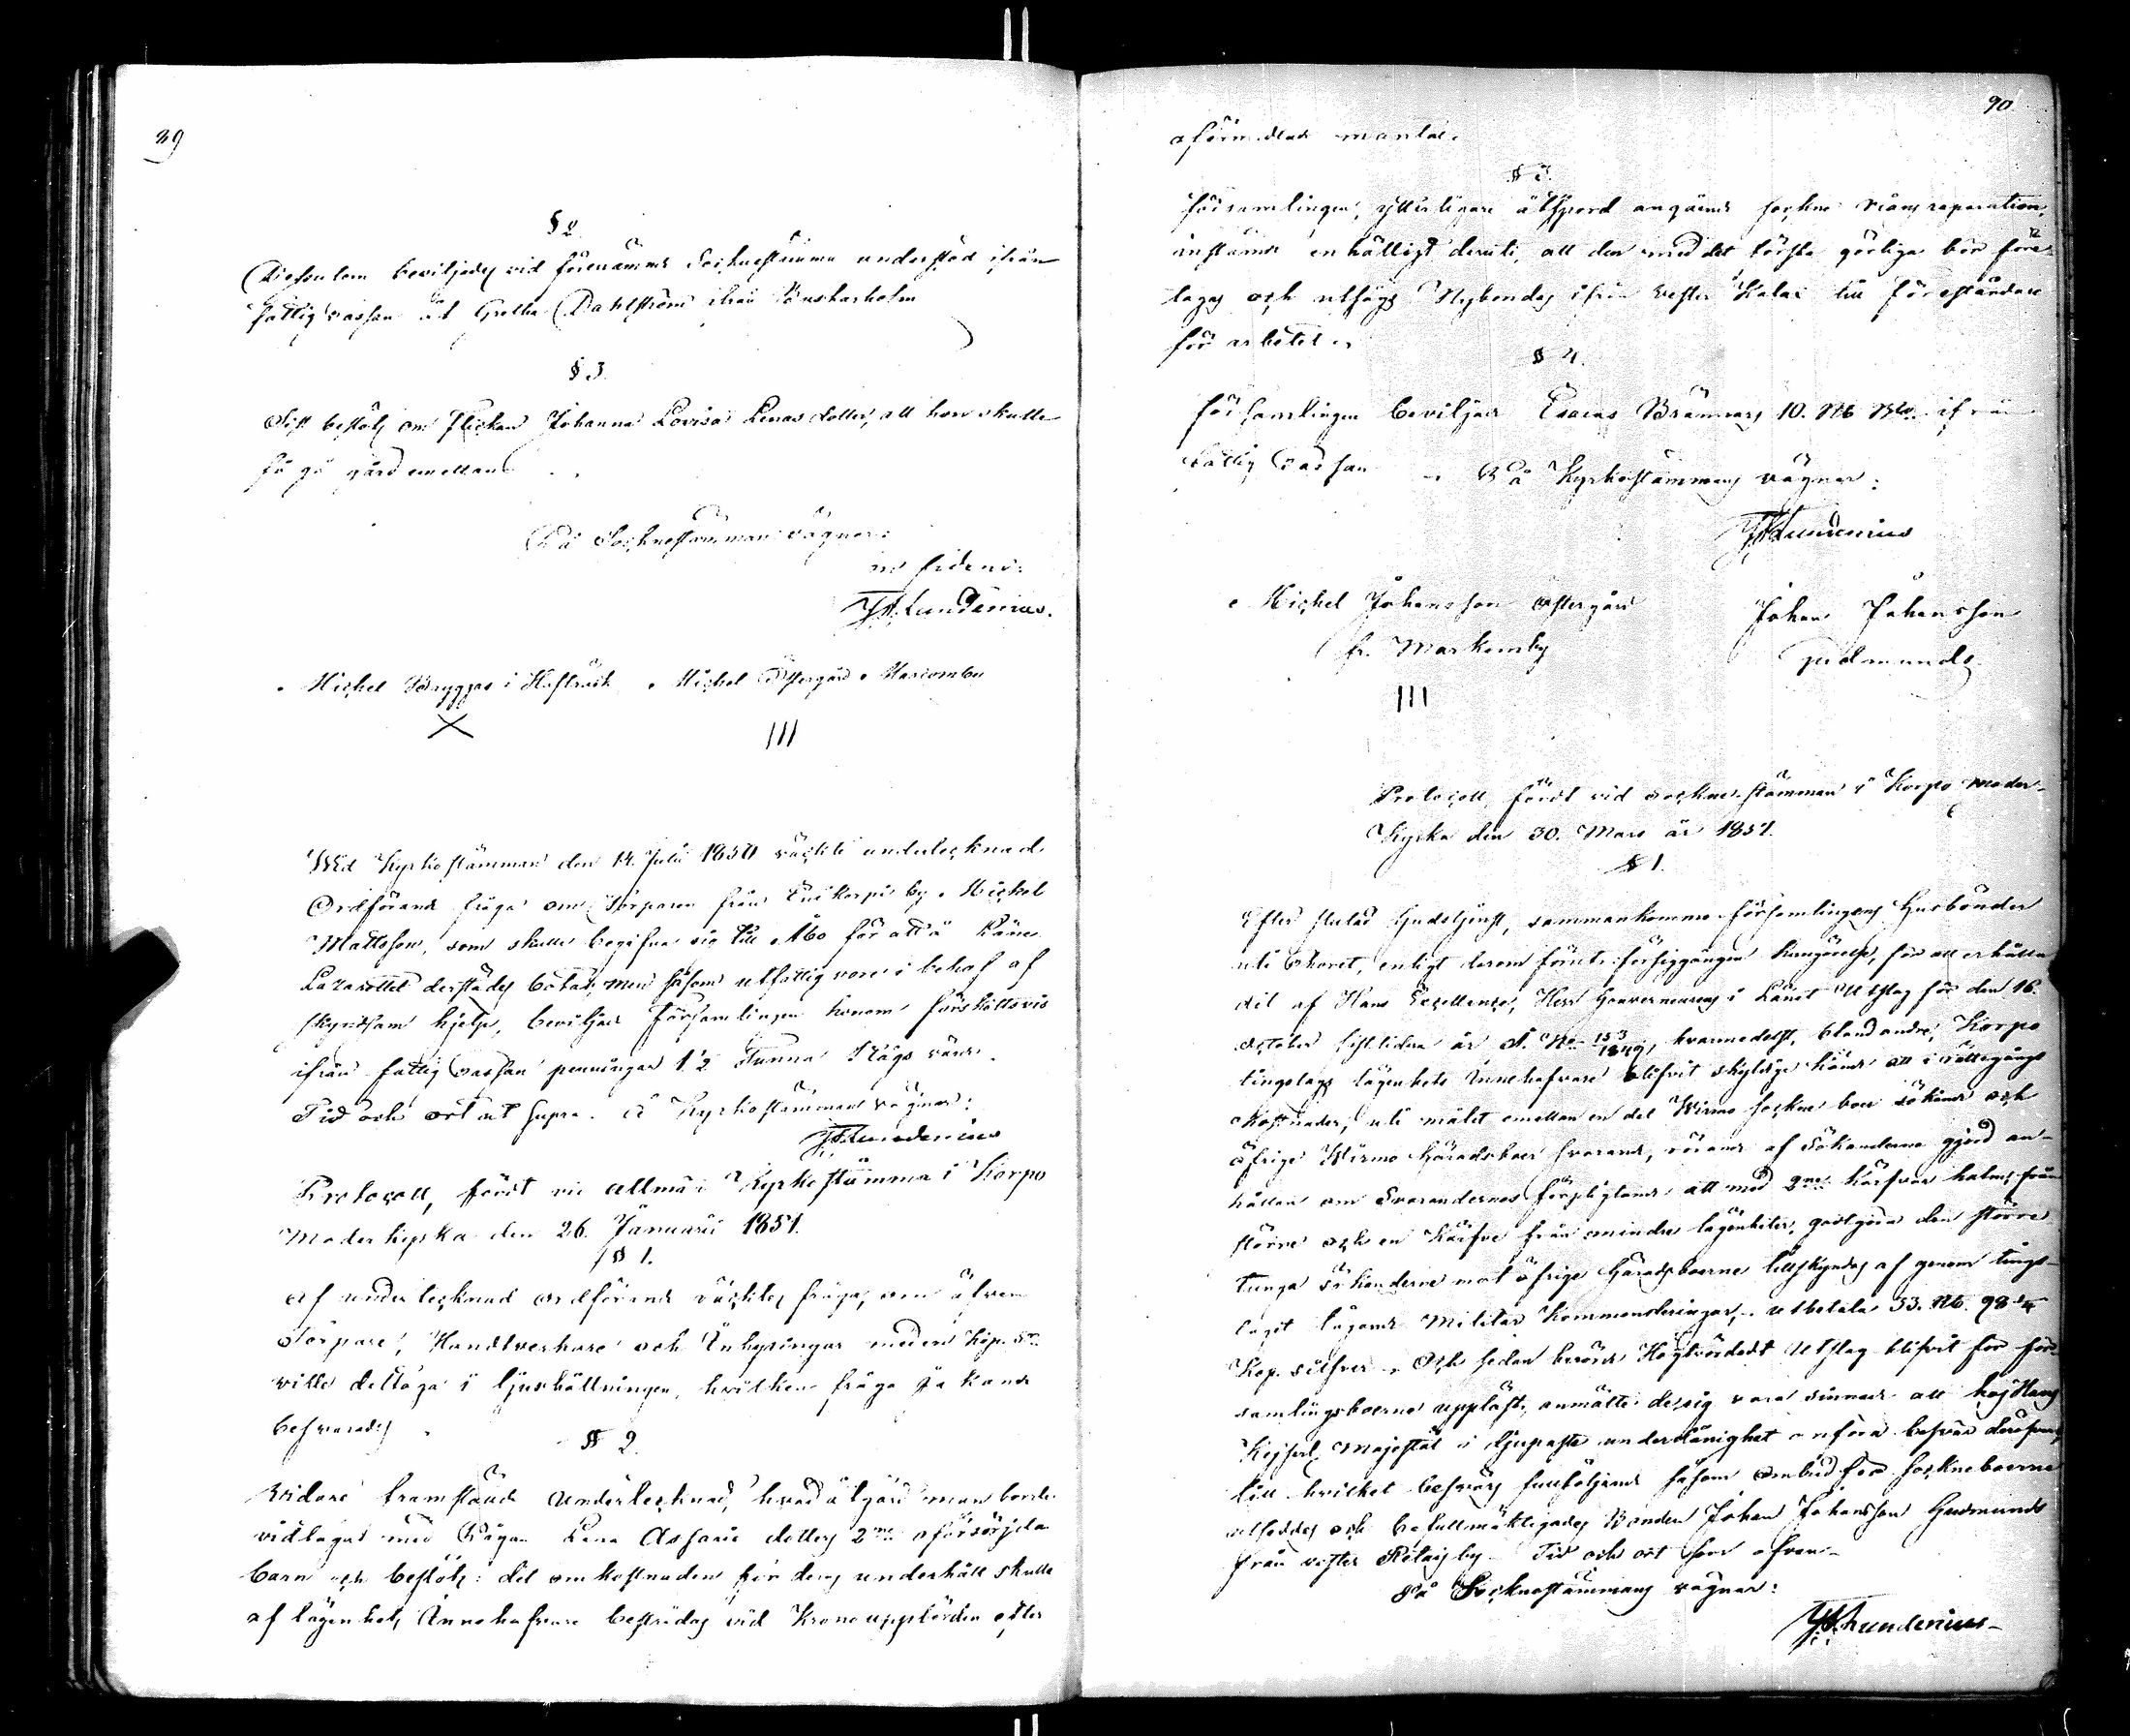 89
§ 2.
Dessutom beviljades vid förenämnde Sockenstämma understöd ifrån
fattig cassan åt Gretha Dahlström ifrån
§ 3.
Sist beslöts om flickan Johanna Lovisa Lenasdotter, att hon skulle
få gå gård emellan.
På Socknestämmans vägnar:
in fidem:
Lundenius.
Michel Bryggars i Hafträsk Michel Östergård Marcomby
X III
Wid Kyrkostämman den 14. Julii 1850 väckte undertecknad
Ordförande fråga om Torparen från Önikorpis by Michel
Mattsson, som skulle begifva sig till Åbo för att å Läns
Lazarettet derstädes botas, men såsom utfattig vore i behof af
skyndsam hjelp, beviljade Församlingen honom förskottsvis
ifrån fattig cassan penningar 1/2 Tunna Rågs värde.
Tid och ort ut supra. å Kyrkostämmans vägnar:
Lundenius
Protocoll, fördt vid allmän Kyrkostämma i Korpo
Moderkyrka den 26. Januarii 1851.
§ 1.
Af undertecknad ordförande väcktes fråga, om äfven
Torpare, Handtverkare och Inhysingar med en Kop. Sr.
ville deltaga i ljushållningen, hvilken fråga Ja kande
besvarades.
§ 2.
Widare framstälde Undertecknad, hvad åtgärd man borde
vidtaga med Pigan Lena Assarie dotters 2ne oförsörjda
barn och beslöts: det omkostnaden för deras underhåll skulle
af lägenhets Innehafvare bestridas vid Krono uppbörden efter
90.
oförmedlade mantal.
§ 3.
Församlingen, ytterligare åtspord angående sockne reparation,
instämde enhälligt deruti, att den med det första görliga bör före-
tagas och utsågs Nybondas ifrån Vester Kalax till föreståndare
för arbetet.
§ 4.
Församlingen beviljade Esaias Brännars 10. Rb Bco. ifrån
fattig cassan På Kyrkostämmans vägnar:
Lundenius
Michel Johansson Östergård Johan Johansson
fr. Markomby Gudmunds
III
Protocoll, fördt vid sockne stämman i Korpo Moder-
Kyrka den 30. Mars år 1851.
§ 1.
Efter slutad Gudstjenst, sammankommo församlingens Husbönder
uti Choret, enligt derom förut försiggången kungörelse, för att erhålla
del af Hans Excellence, Herr Gouverneurens i Länet Utslag för den 16.
October sistlidne år N:o 153/1849, hvarmedelst, bland andre, Korpo
tingslags lägenhets Innehafvare blifvit skyldige kände att i rättegångs
Kostnader, uti målet emellan en del Wirmo sockne boer sökande och
öfrige Wirmo Häradsboer svarande, rörande af Sökanderne gjord an-
hållan om Svarandernes förpligtande att med 2ne kärfvar halm från
större och en Kärfve från mindre lägenheter, godtgöra den större
tunga Sökanderne mot öfrige Häradsboerne tillskyndas af genom tings-
laget tågande Militär Kommenderingar, utbetala 33. Rb. 98
Kop. silfver. Och sedan berörde Högvördadt Utslag blifvit för för-
samlingsboerne uppläst, anmälte de sig vara sinnade att hos Hans
Kejserl. Majestät i djupaste underdånighet anföra besvär deröfver,
till hvilket besvärs fullföljande såsom Ombud för socknéboerne
utseddes och befullmäktigades Bonden Johan Johansson Gudmunds
från Vester Retais by. Tid och ort som ofvan.
På Socknestämmans vägnar:
Lundenius